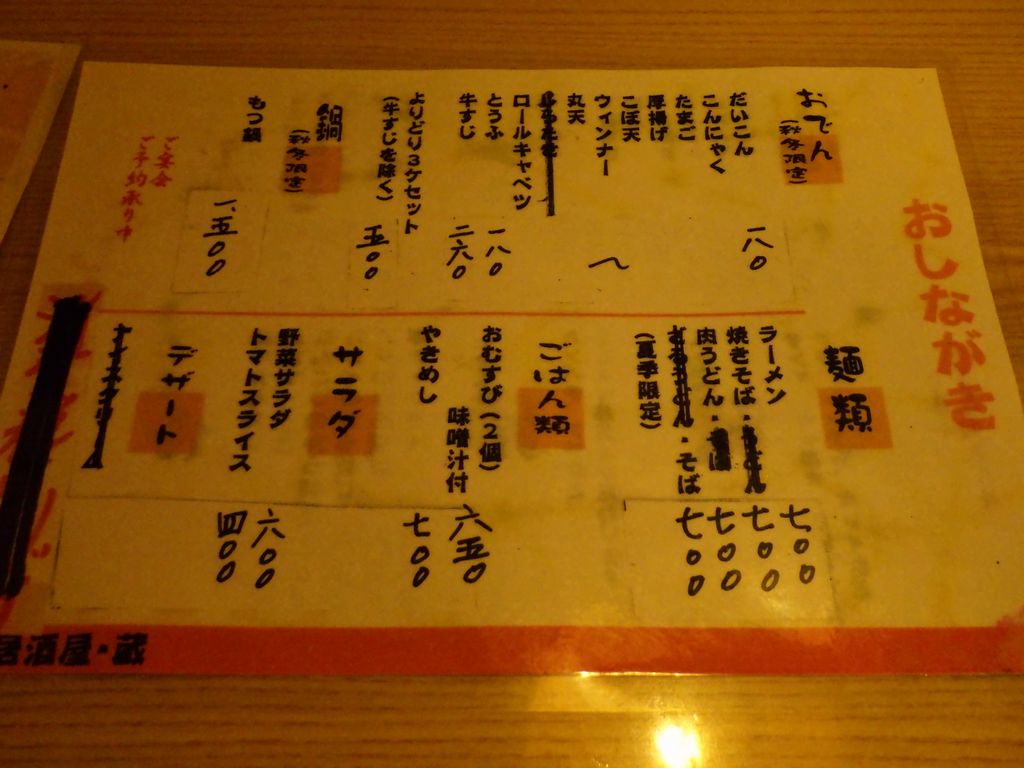 おしながき
おでん
(秋冬限定)
だいこん
こんにゃく
たまご
厚揚げ
ごぼ天
ウィンナー
丸天
ロールキャベツ
とうふ
牛すじ
よりどり3ケセット
(牛すじを除く)
一八〇
〜
一八〇
二六〇
五〇〇
鍋
(秋冬限定)
もつ鍋
一、五〇〇
ご宴会
ご予約承り中
麺類
ラーメン
焼きそば・
肉うどん・
・そば
(夏季限定)
七〇〇
七〇〇
七〇〇
七〇〇
ごはん類
おむすび(2個)
味噌汁付
やきめし
六五〇
七〇〇
サラダ
野菜サラダ
トマトスライス
六〇〇
四〇〇
デザート
居酒屋・蔵